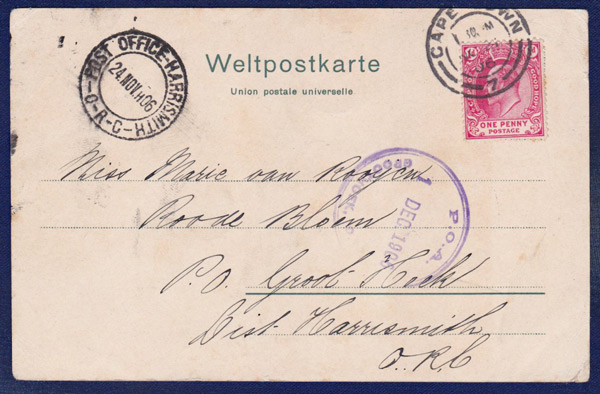 POST OFFICE-HARRISMITH
24 NOV 06
O-R-C
Weltpostkarte
Union postale universelle
CAPE TOWN
7
GOOD HOPE
ONE PENNY
POSTAGE
Miss Marie van Rooyen
Roode Bloem
P.O. Groot Hoek
Dist. Harrismith
O.R.C
P.O.A.
1 DEC 190